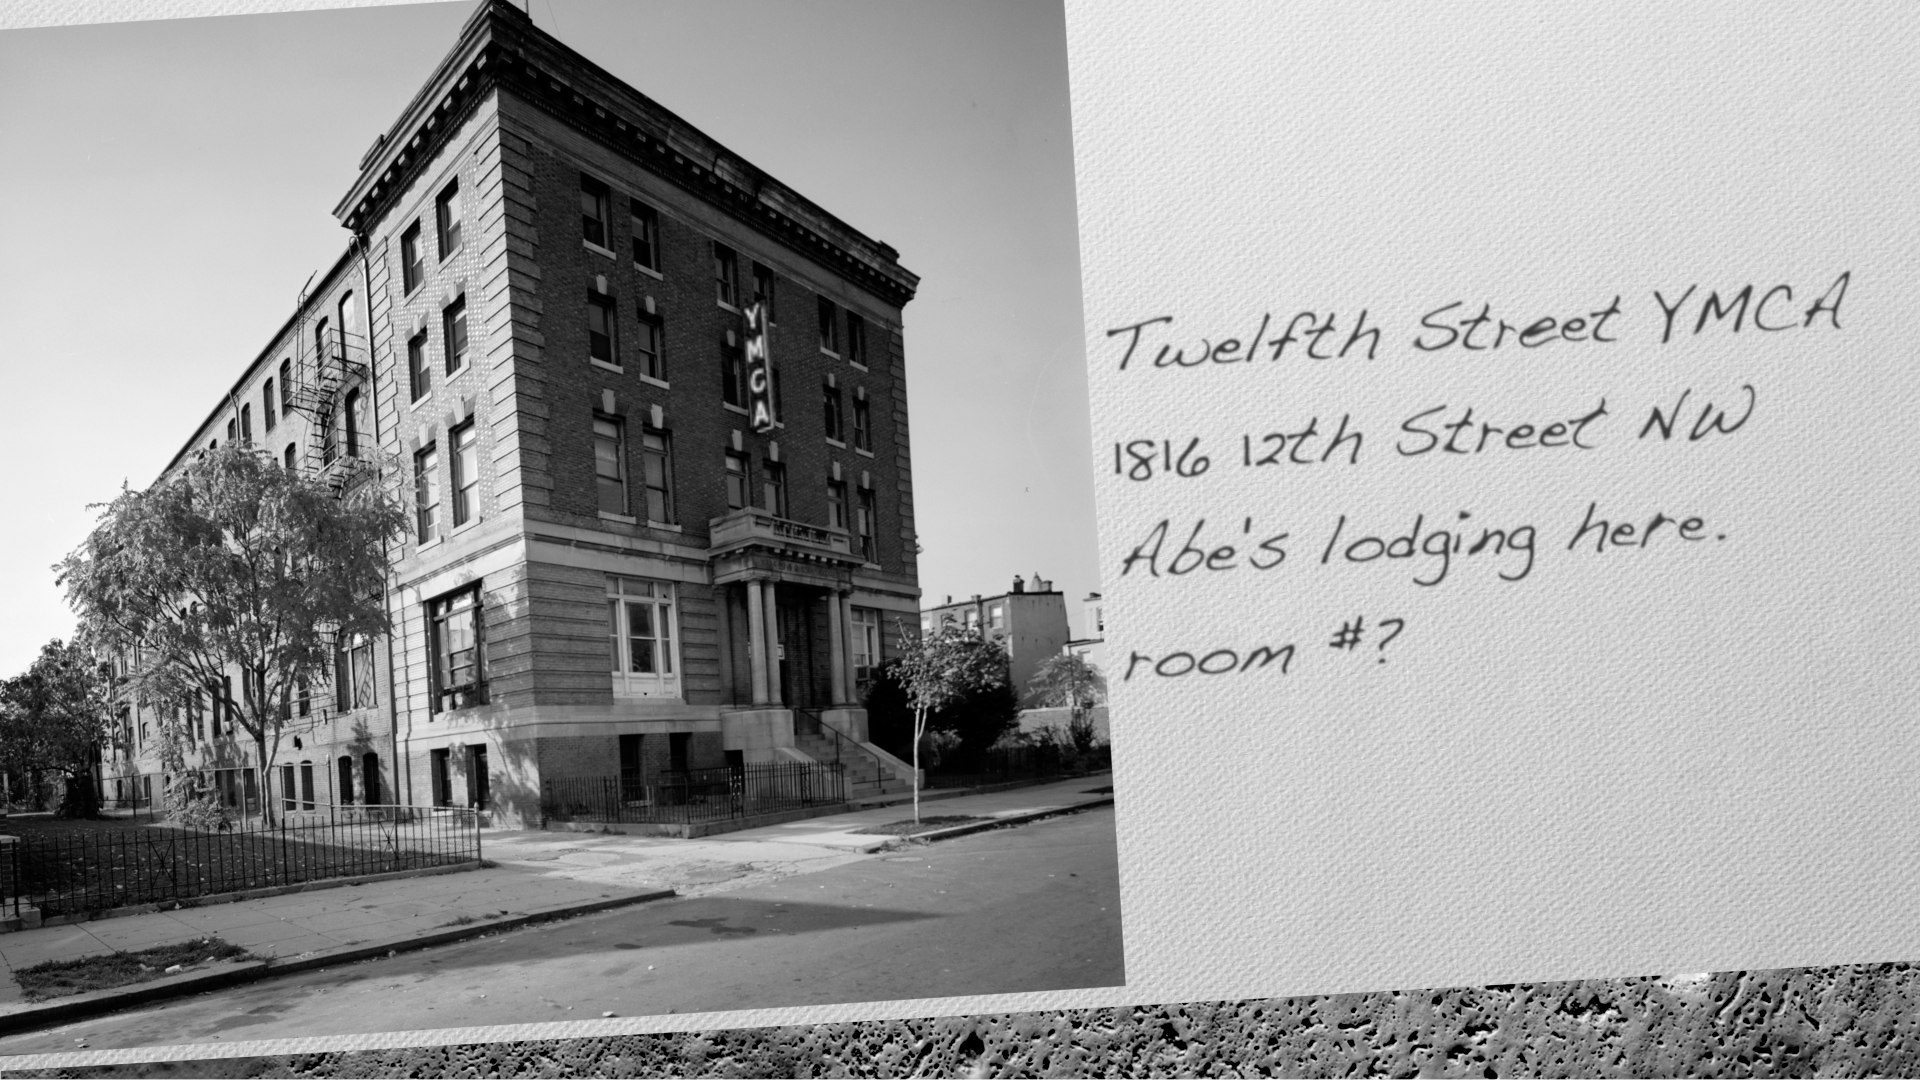 YMCA
Twelfth Street YMCA
1816 12th Street NW
Abe's lodging here.
room #?